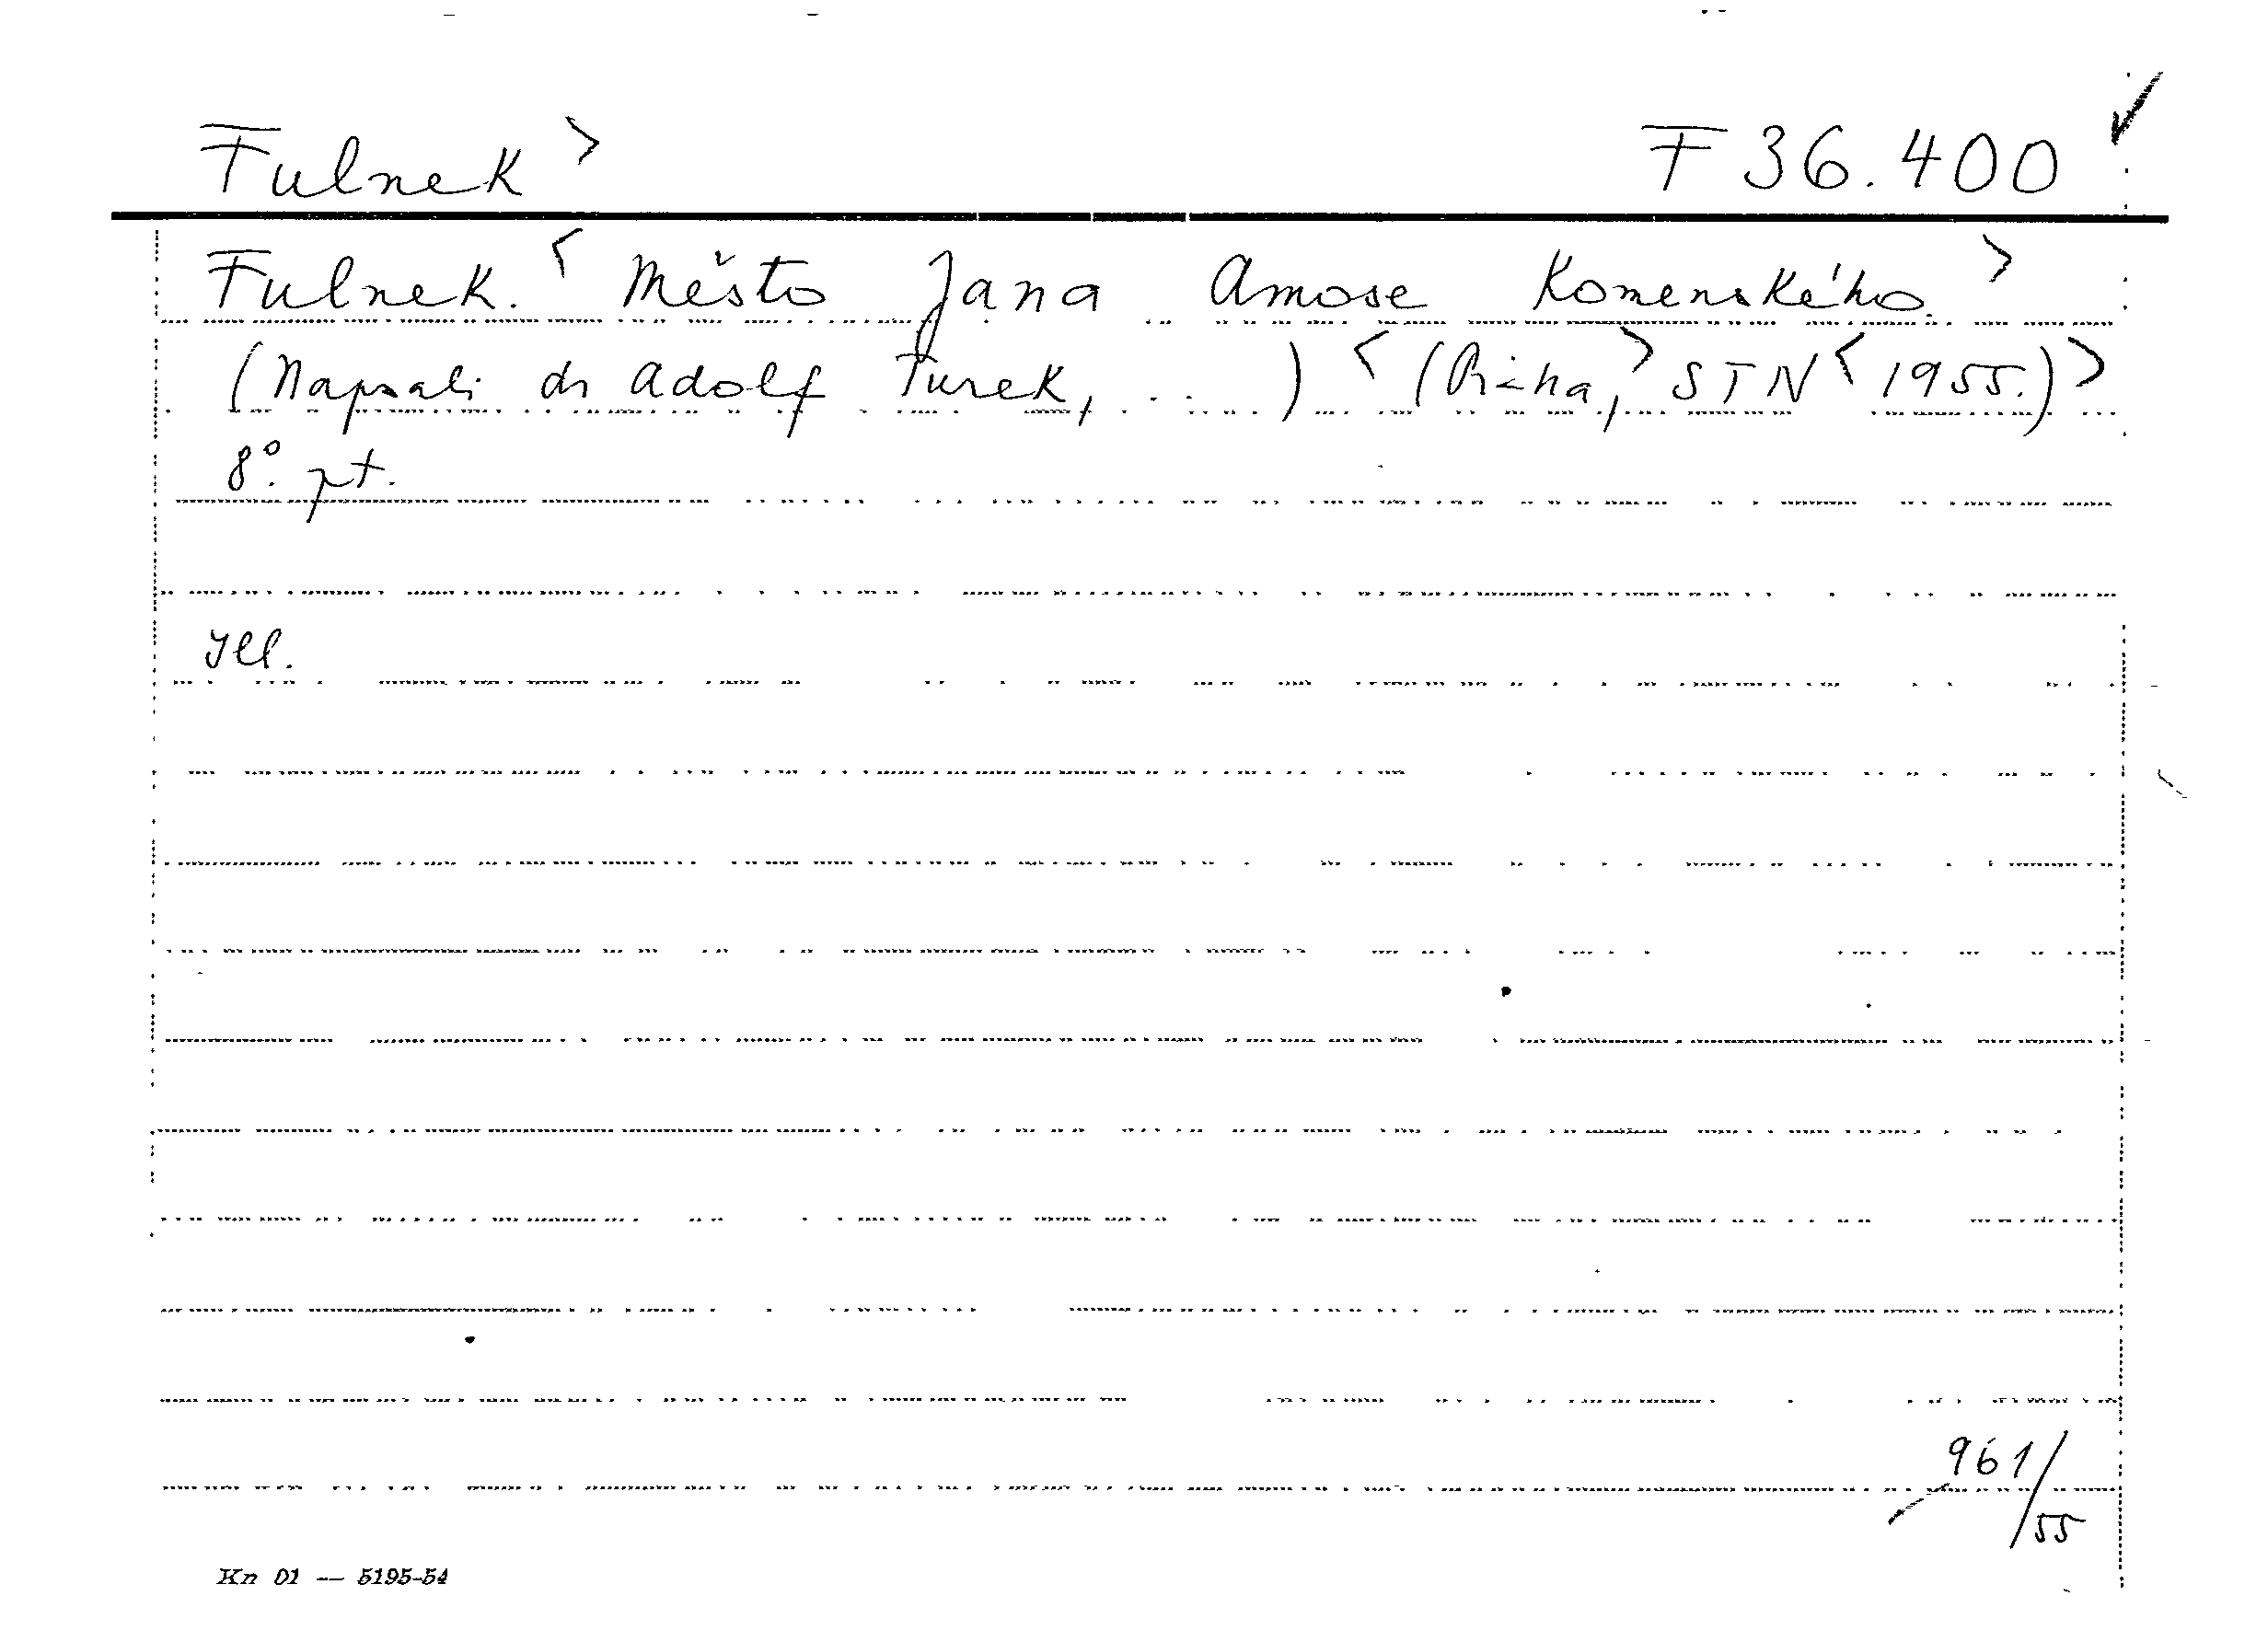 Fulnek > F 36.400 ✓
Fulnek. < Město Jana Amose Komenského. >
(Napsali dr Adolf Turek, ...) < (Praha, > STN < 1955.) >
8°. pt.
Ill.
961/55
Kn 01 — 5195-54